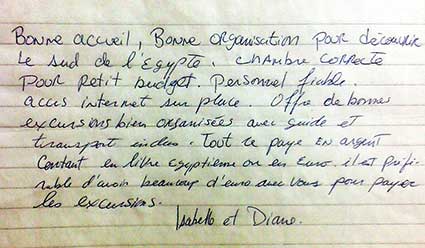 Bonne accueil, Bonne organisation pour découvrir
le sud de l'Egypte. chambre correcte
pour petit budget. Personnel fiable.
accès internet sur place. Offre de bonnes
excursions bien organisées avec guide et
transport inclus. Tout ce paye en argent
contant en livre egyptienne ou en Euro. il est préfé-
rable d'avoir beaucoup d'euro avec vous pour payer
les excursions.
Isabelle et Diane.